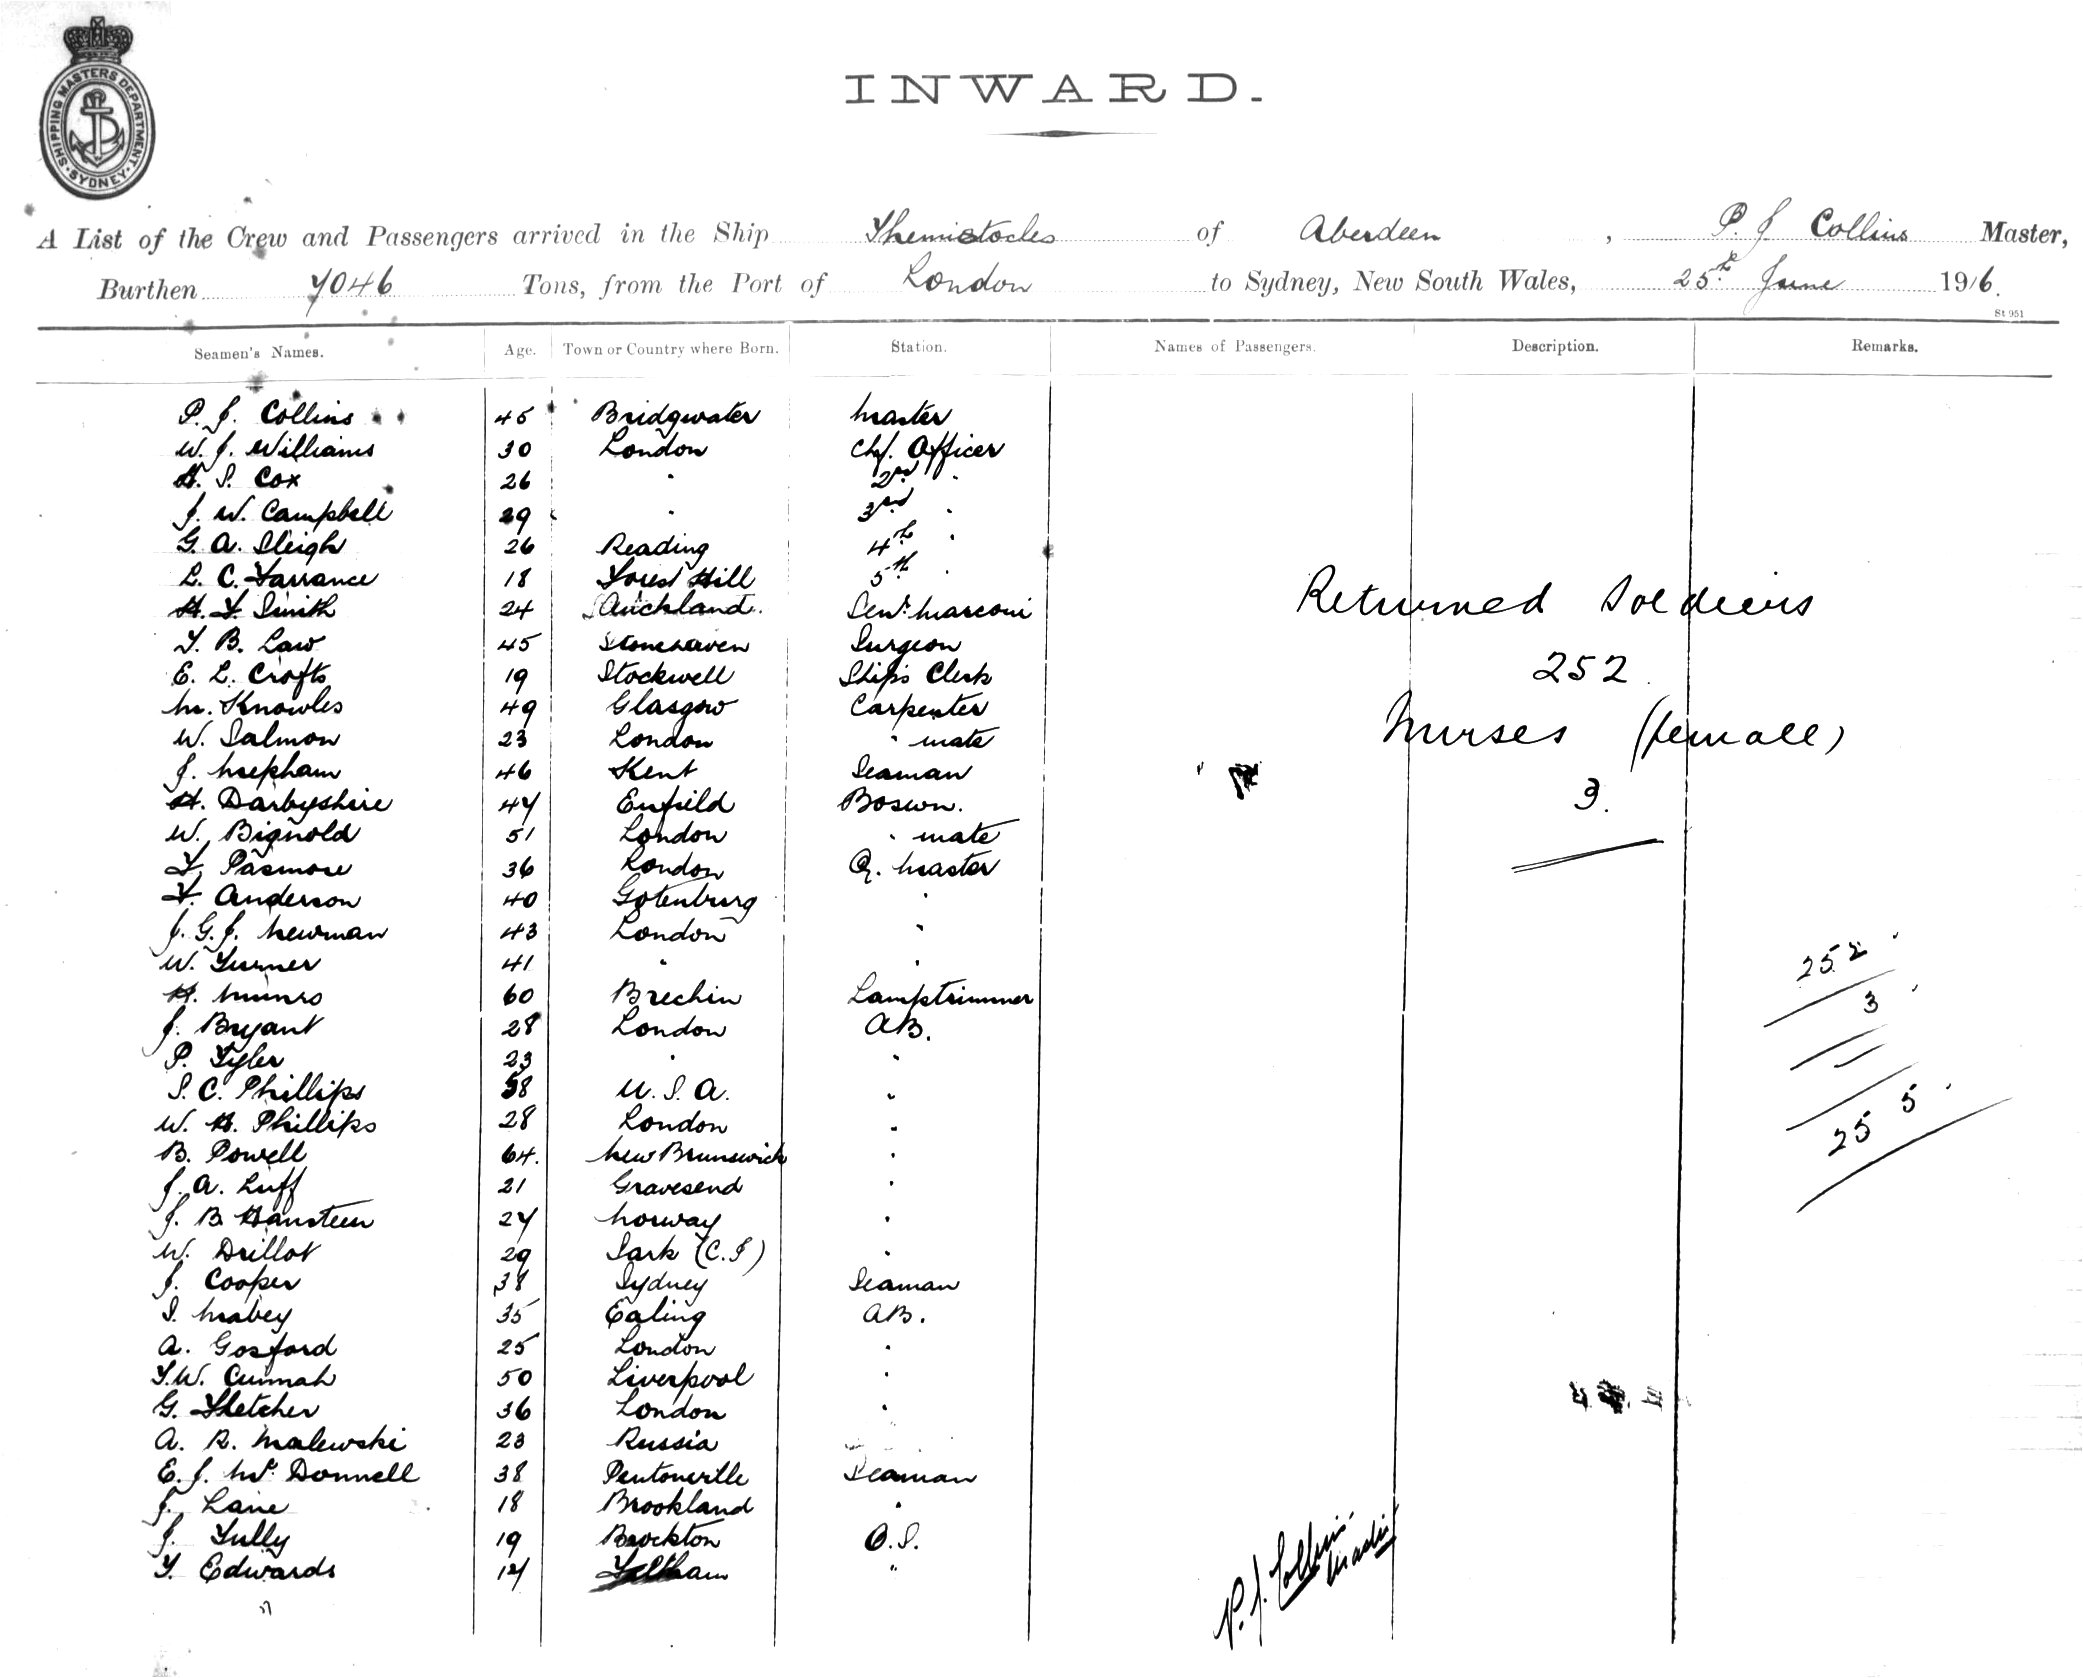 SHIPPING MASTERS DEPARTMENT. SYDNEY
INWARD.
A List of the Crew and Passengers arrived in the Ship Themistocles of Aberdeen, P. J. Collins Master,
Burthen 7046 Tons, from the Port of London to Sydney, New South Wales, 25th June 1916.
St 951
Seamen's Names. Age. Town or Country where Born. Station. Names of Passengers. Description. Remarks.
P. J. Collins 45 Bridgwater Master
W. J. Williams 30 London Chf. Officer
H. S. Cox 26 " 2nd "
J. W. Campbell 29 " 3rd "
G. A. Sleigh 26 Reading 4th "
L. C. Farrance 18 Forest Hill 5th "
H. F. Smith 24 Auckland. Senr. Marconi
T. B. Law 45 Stonehaven Surgeon
E. L. Crofts 19 Stockwell Ships Clerk
M. Knowles 49 Glasgow Carpenter
W. Salmon 23 London " mate
J. Mepham 46 Kent Seaman
H. Darbyshire 47 Enfield Boswn.
W. Bignold 51 London " mate
F. Pasmore 36 London Q. Master
F. Anderson 40 Gotenburg "
J. G. J. Newman 43 London "
W. Turner 41 " "
H. Munro 60 Brechin Lamptrimmer
J. Bryant 28 London AB.
P. Tyler 23 " "
S. C. Phillips 38 U. S. A. "
W. H. Phillips 28 London "
B. Powell 64. New Brunswick "
J. A. Luff 21 Gravesend "
J. B. Hansteen 27 Norway "
W. Drillot 29 Sark (C. I) "
J. Cooper 38 Sydney Seaman
S. Mabey 35 Ealing AB.
A. Gosford 25 London "
T. W. Cunnah 50 Liverpool "
G. Fletcher 36 London "
A. R. Malewski 23 Russia
E. J. McDonnell 38 Pentonville Seaman
J. Lane 18 Brookland "
J. Tully 19 Brockton O. S.
T. Edwards 17 Feltham "
Returned Soldiers
252
Nurses (female)
3.
252
3
255
P. J. Collins
Master